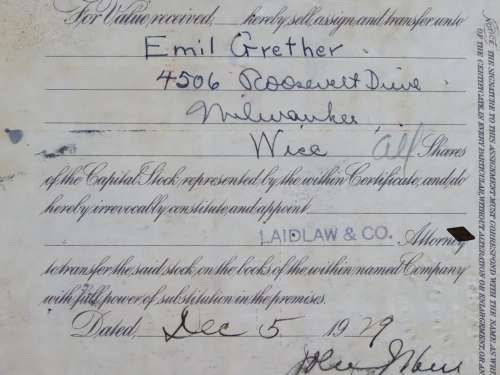 For Value received, hereby sell, assign and transfer unto
Emil Grether
4506 Roosevelt Drive
Milwaukee,
Wisc all Shares
of the Capital Stock, represented by the within Certificate, and do
hereby irrevocably constitute and appoint
LAIDLAW & CO. Attorney
to transfer the said stock, on the books of the within named Company
with full power of substitution in the premises.
Dated, Dec 5 1929
NOTICE THE SIGNATURE TO THIS ASSIGNMENT MUST CORRESPOND WITH THE NAME AS
OF THE CERTIFICATE IN EVERY PARTICULAR, WITHOUT ALTERATION OR ENLARGEMENT OR